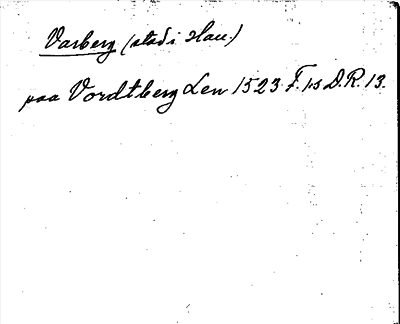 Varberg (stad i Hall.)
paa Vordtberg Len 1523 F. 1s D.R. 13.